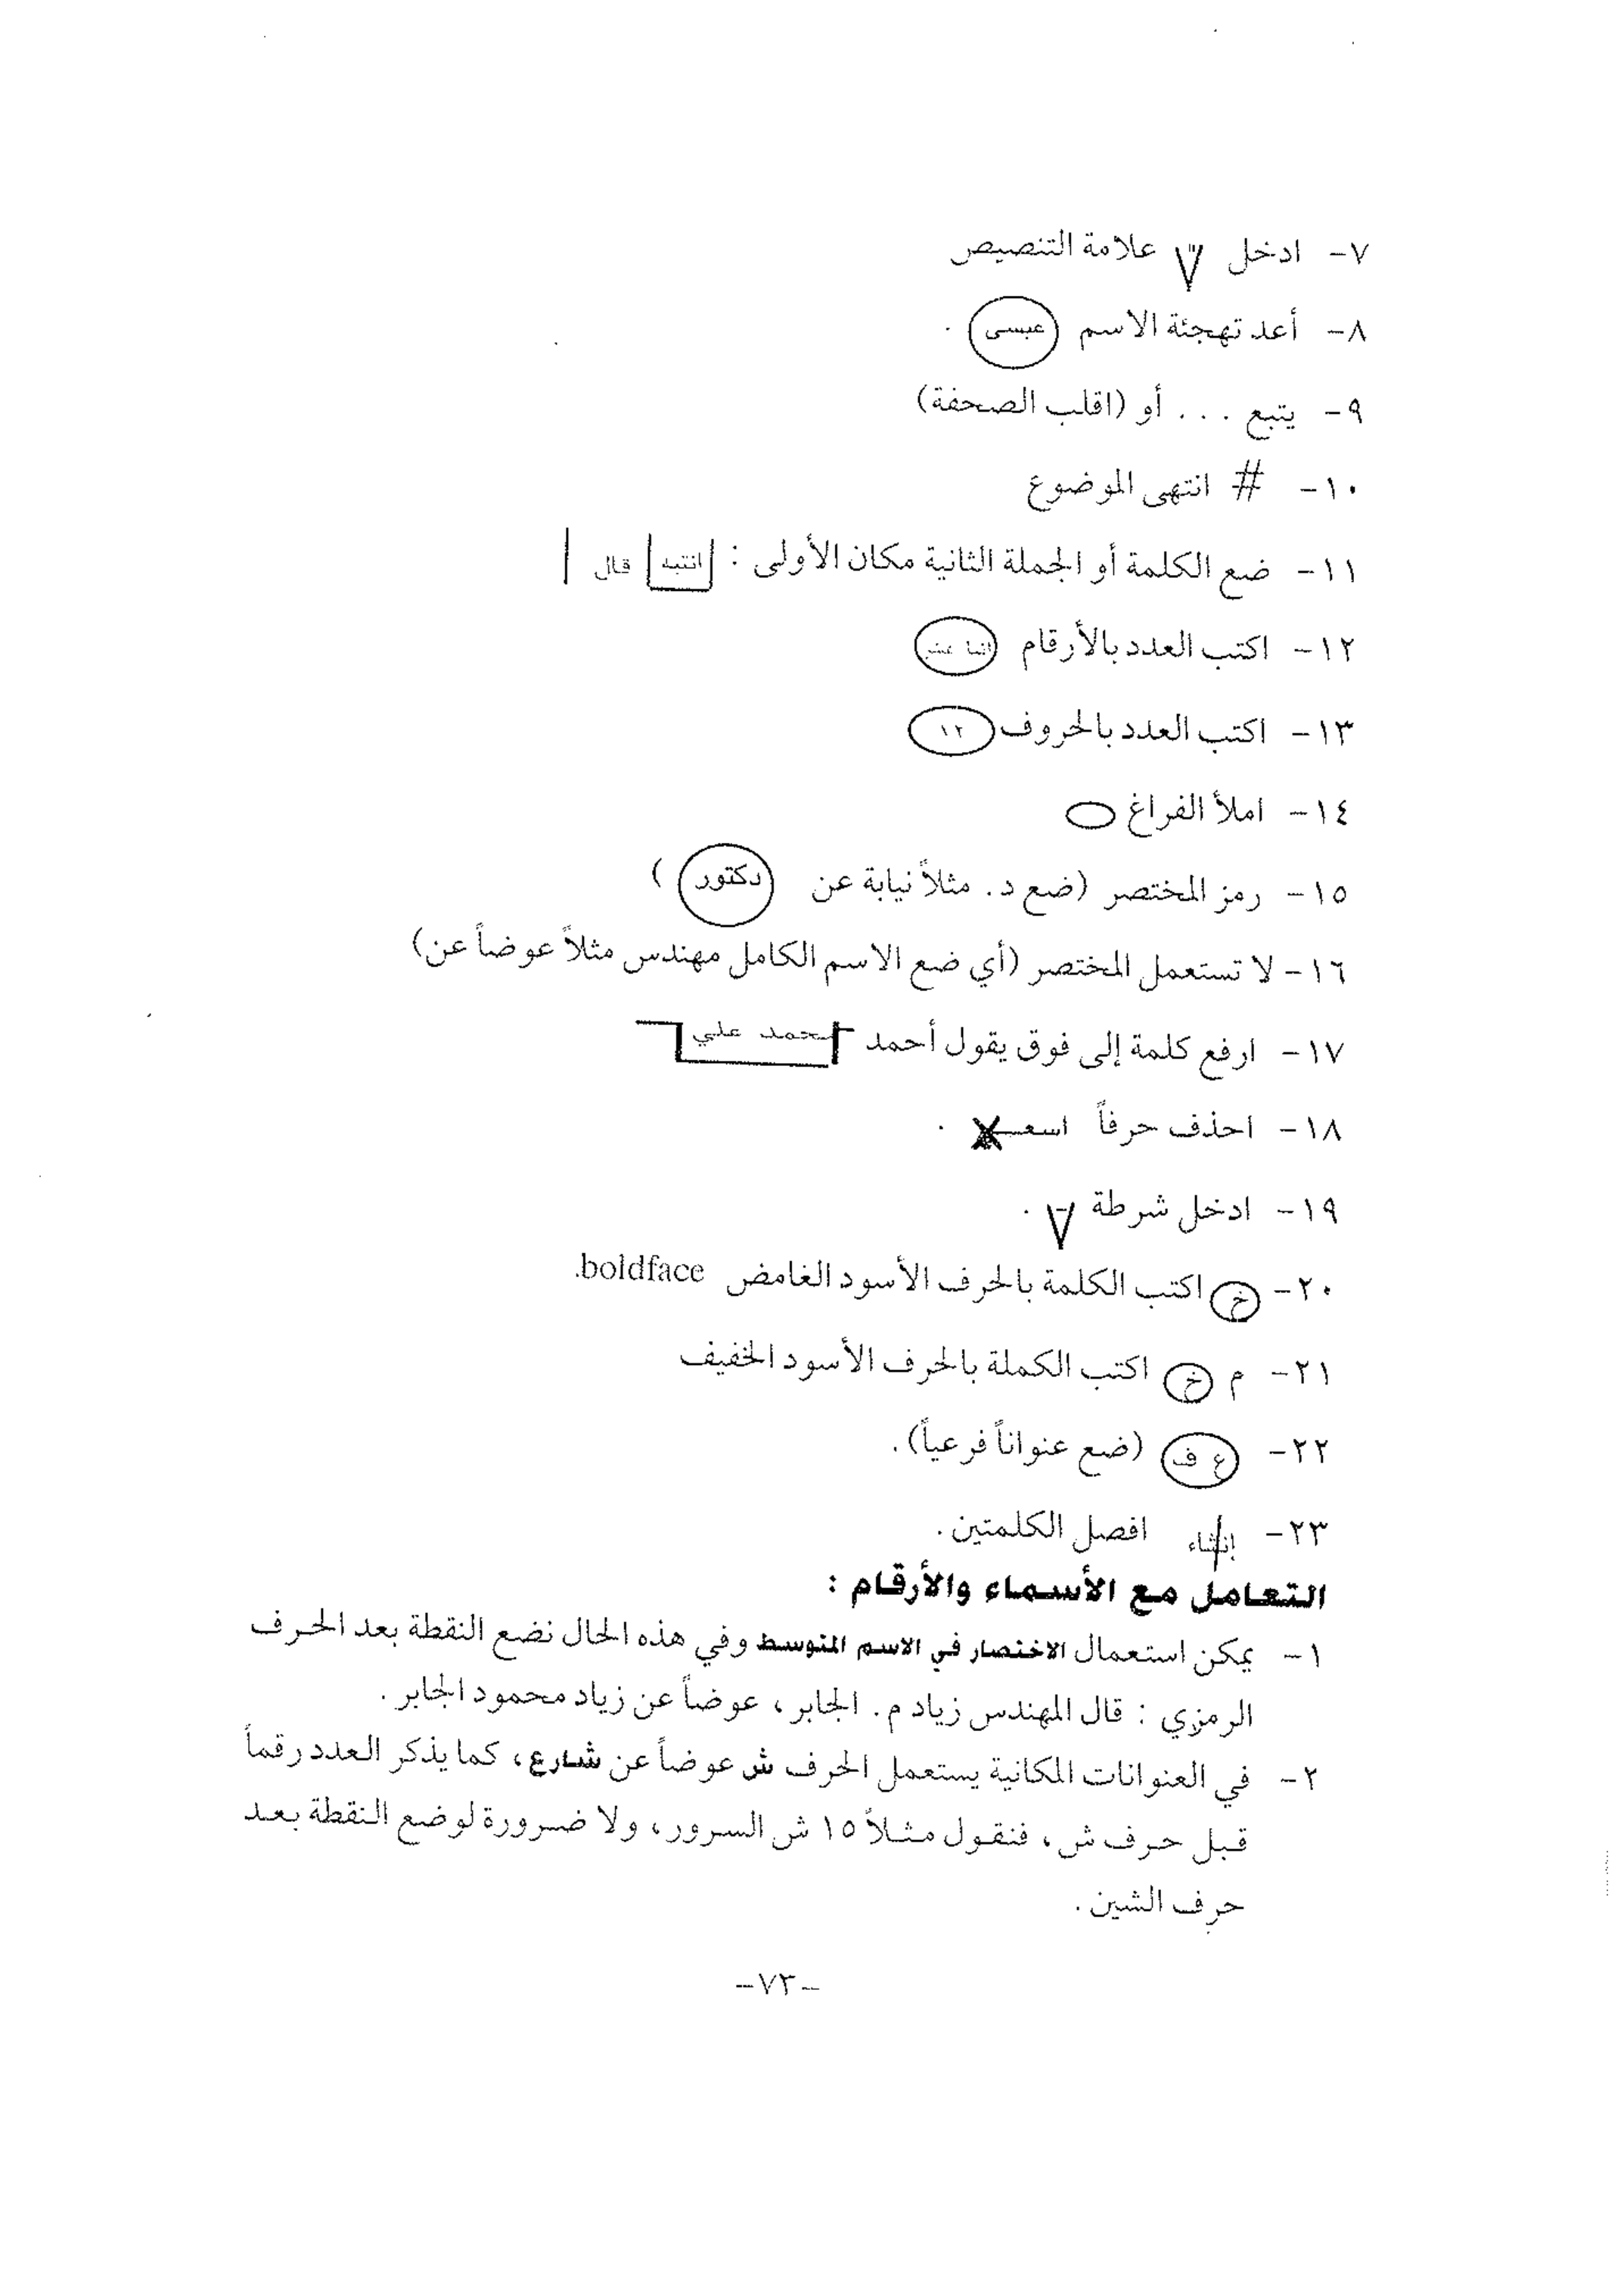 ٧- ادخل " علامة التنصيص
٨- أعد تهجئة الاسم عيسى .
٩- يتبع . . . أو (اقلب الصحفة)
١٠- # انتهى الموضوع
١١- ضع الكلمة أو الجملة الثانية مكان الأولى : انتبه قال
١٢- اكتب العدد بالأرقام اثنا عشر
١٣- اكتب العدد بالحروف ١٢
١٤- املأ الفراغ
١٥- رمز المختصر (ضع د. مثلاً نيابة عن دكتور )
١٦- لا تستعمل المختصر (أي ضع الاسم الكامل مهندس مثلاً عوضاً عن)
١٧- ارفع كلمة إلى فوق يقول أحمد محمد علي
١٨- احذف حرفاً اسعـ .
١٩- ادخل شرطة - .
٢٠- خ اكتب الكلمة بالحرف الأسود الغامض boldface.
٢١- م خ اكتب الكملة بالحرف الأسود الخفيف
٢٢- ع ف (ضع عنواناً فرعياً).
٢٣- إنشاء افصل الكلمتين.
التعامل مع الأسماء والأرقام :
١- يمكن استعمال الاختصار في الاسم المتوسط وفي هذه الحال نضع النقطة بعد الحرف
الرمزي : قال المهندس زياد م. الجابر، عوضاً عن زياد محمود الجابر.
٢- في العنوانات المكانية يستعمل الحرف ش عوضاً عن شارع، كما يذكر العدد رقماً
قبل حرف ش، فنقول مثلاً ١٥ ش السرور، ولا ضرورة لوضع النقطة بعد
حرف الشين.
-٧٣-